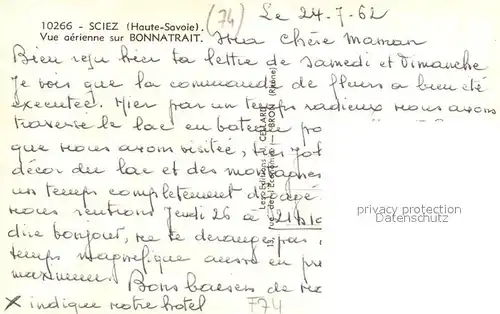 10266 - SCIEZ (Haute-Savoie).
Vue aérienne sur BONNATRAIT.
(74) Le 24-7-62
Ma chère Maman
Bien reçu hier ta lettre de Samedi et Dimanche
Je vois que la commande de fleurs a bien été
executée. Hier par un temps radieux nous avons
traversé le lac en bateau
que nous avons visitée, très
décor du lac et des montagnes
un temps complètement dégagé
nous rentrons Jeudi 26 à 21h
dire bonjour, ne te deranges pas
temps magnifique aussi en
maximum. Bons baisers de
X indique notre hotel F74
Les Editions J. CELLARD
13, rue de l'Economie - BRON (Rhône)
privacy protection
Datenschutz